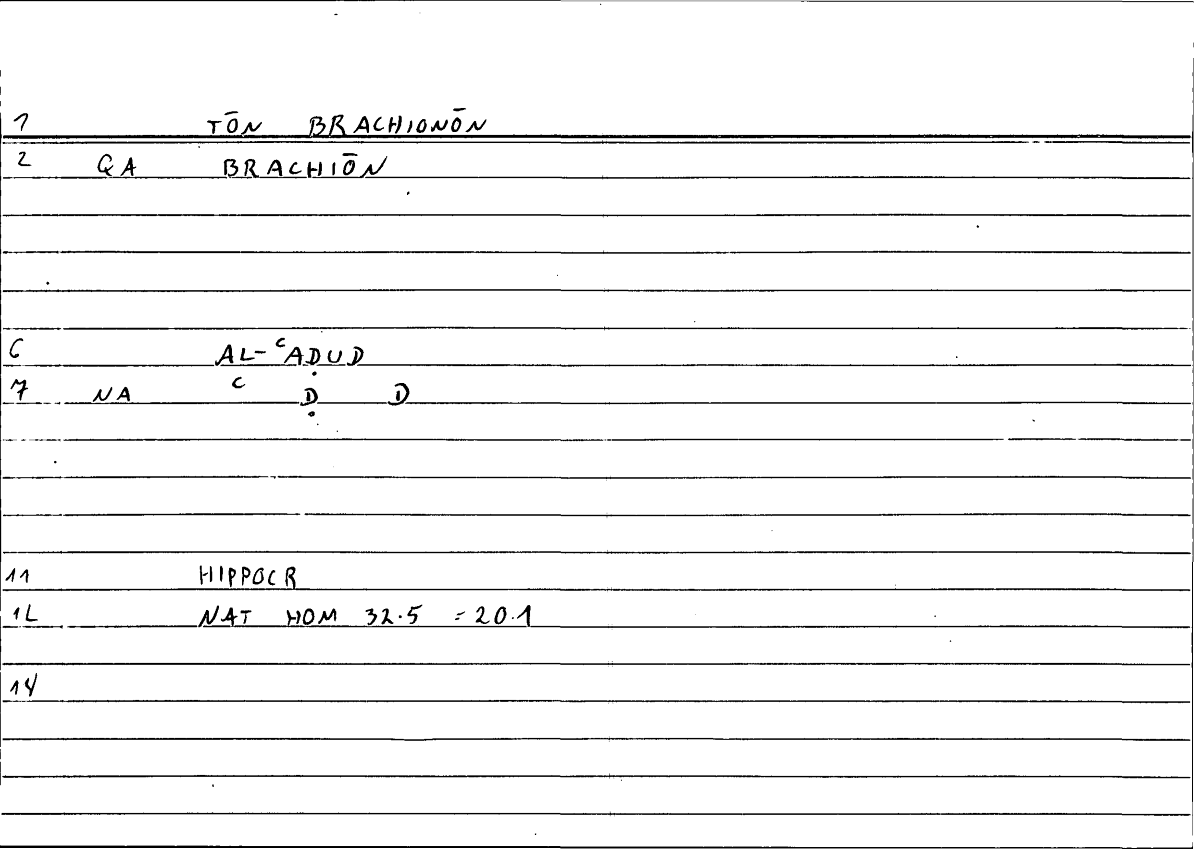 1 TŌN BRACHIONŌN
2 QA BRACHIŌN
6 AL-ᶜAḌUD
7 NA ᶜ Ḍ D
11 HIPPOCR
12 NAT HOM 32.5 = 20.1
14